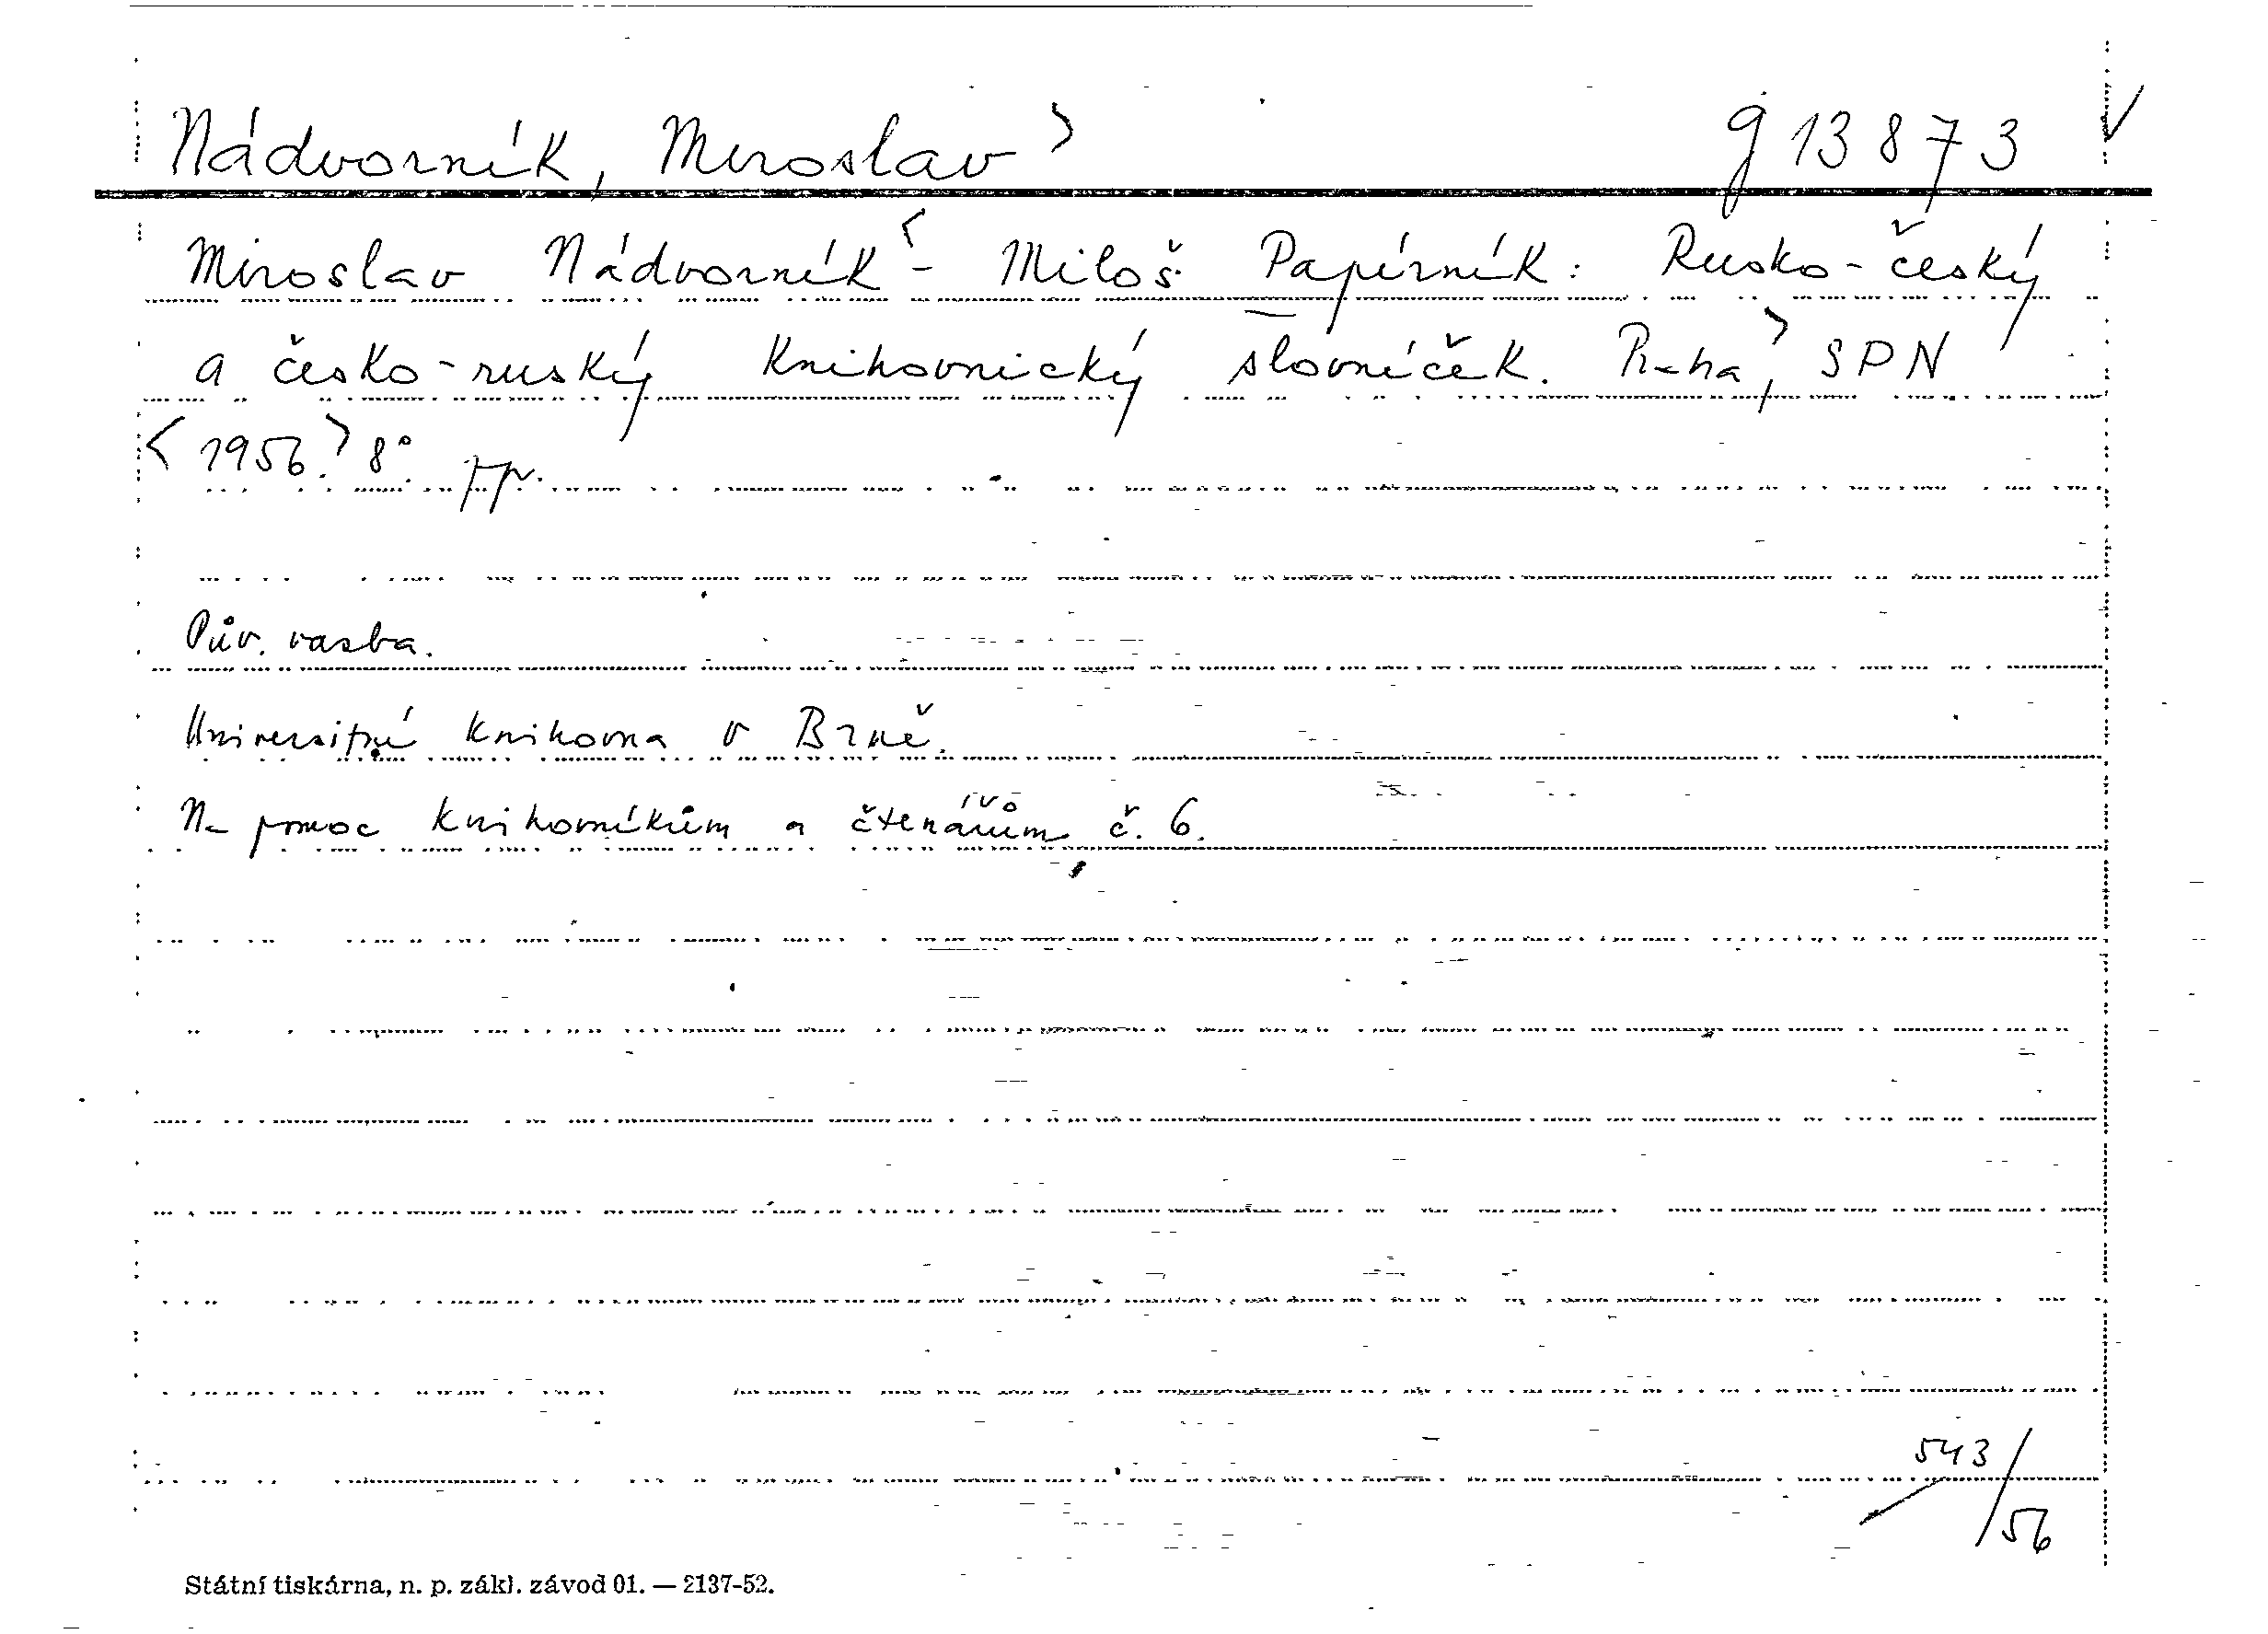 Nádvorník, Miroslav> g 13873 ✓
Miroslav Nádvorník< - Miloš Papírník: Rusko-český
a česko-ruský knihovnický slovníček. Praha,> SPN
<1956.> 8°.
Pův. vazba.
Universitní knihovna v Brně.
Na pomoc knihovníkům a čtenářům č. 6.
543/56
Státní tiskárna, n. p. zákl. závod 01. — 2137-52.